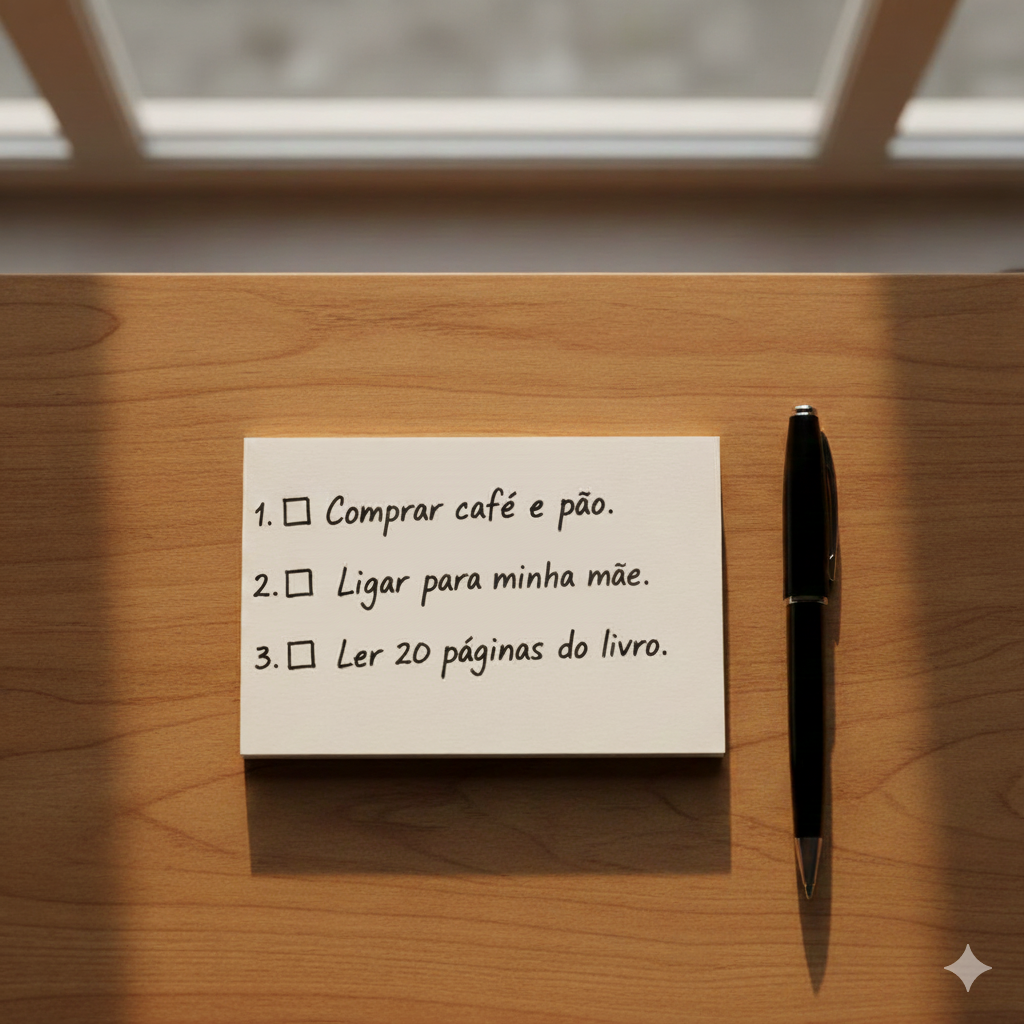 1. ☐ Comprar café e pão.
2. ☐ Ligar para minha mãe.
3. ☐ Ler 20 páginas do livro.